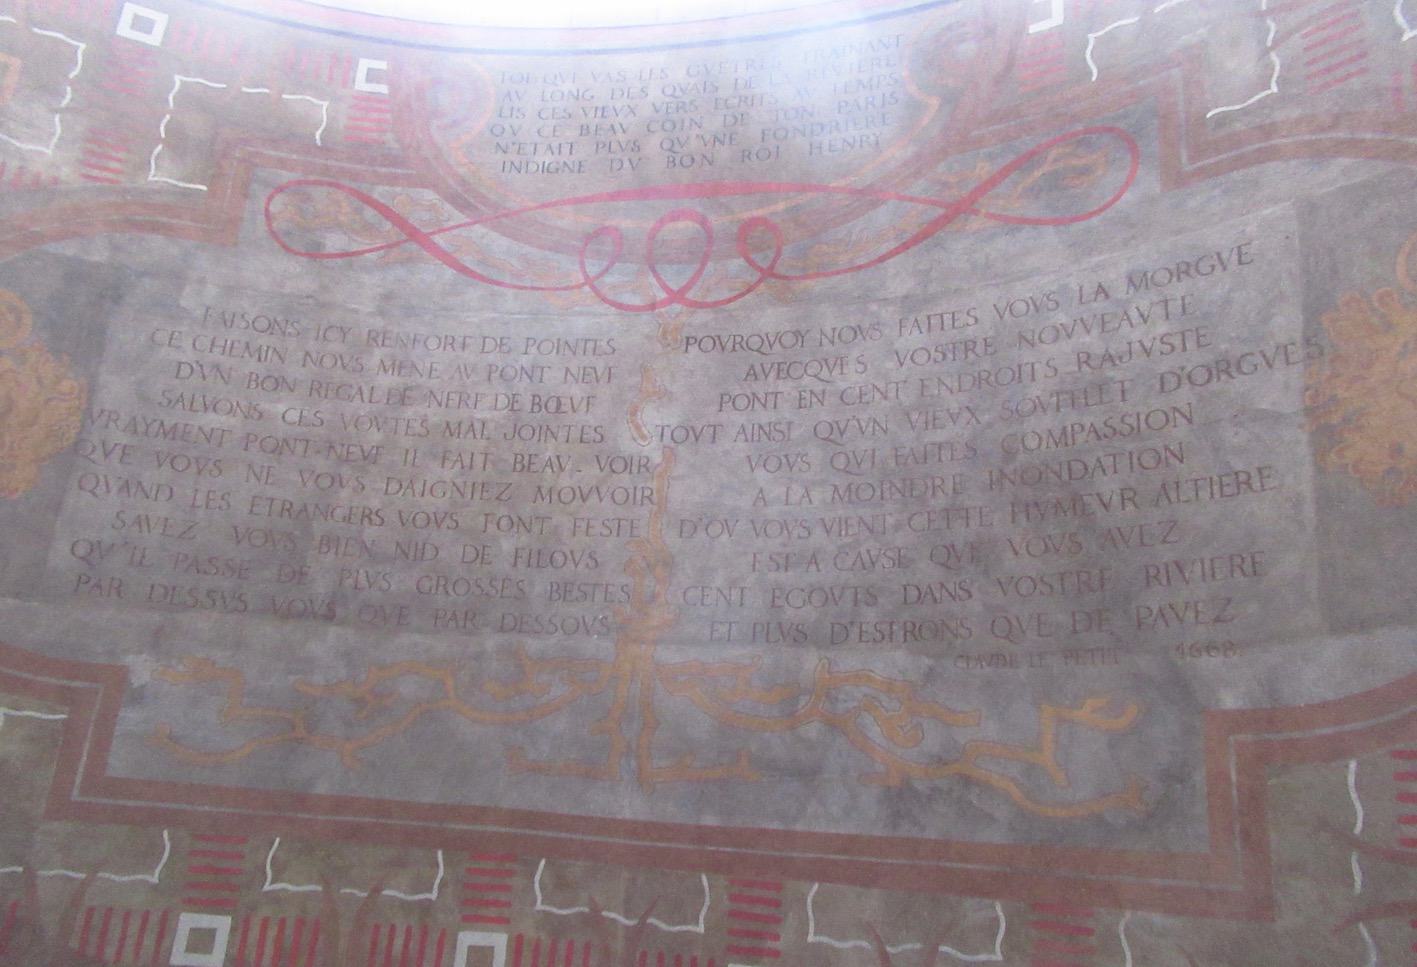 TOI QVI VAS LES GVETRES TRAINANT
AV LONG DES QVAIS DE LA RIVIERE
LIS CES VIEVX VERS ECRITS AV TEMPS
QV CE BEAV COIN DE TON PARIS
N'ETAIT PLVS QV'VNE FONDRIERE
INDIGNE DV BON ROI HENRY
FAISONS ICY RENFORT DE POINTES
CE CHEMIN NOVS MENE AV PONT NEVF
D'VN BON REGAL DE NERF DE BŒVF
SALVONS CES VOVTES MAL JOINTES
VRAYMENT PONT-NEVF IL FAIT BEAV-VOIR
QVE VOVS NE VOVS DAIGNIEZ MOVVOIR
QVAND LES ETRANGERS VOVS FONT FESTE
SAVEZ VOVS BIEN NID DE FILOVS
QV'IL PASSE DE PLVS GROSSES BESTES
PAR DESSVS VOVS QVE PAR DESSOVS
POVRQVOY NOVS FAITES VOVS LA MORGVE
AVECQVES VOSTRE NOVVEAVTE
PONT EN CENT ENDROITS RAJVSTE
TOVT AINSI QV'VN VIEVX SOVFLET D'ORGVES
VOVS QVI FAITES COMPASSION
A LA MOINDRE INONDATION
D'OV VOVS VIENT CETTE HVMEVR ALTIERE
EST A CAVSE QVE VOVS AVEZ
CENT EGOVTS DANS VOSTRE RIVIERE
ET PLVS D'ESTRONS QVE DE PAVEZ
CLAVDE LE PETIT 1668.